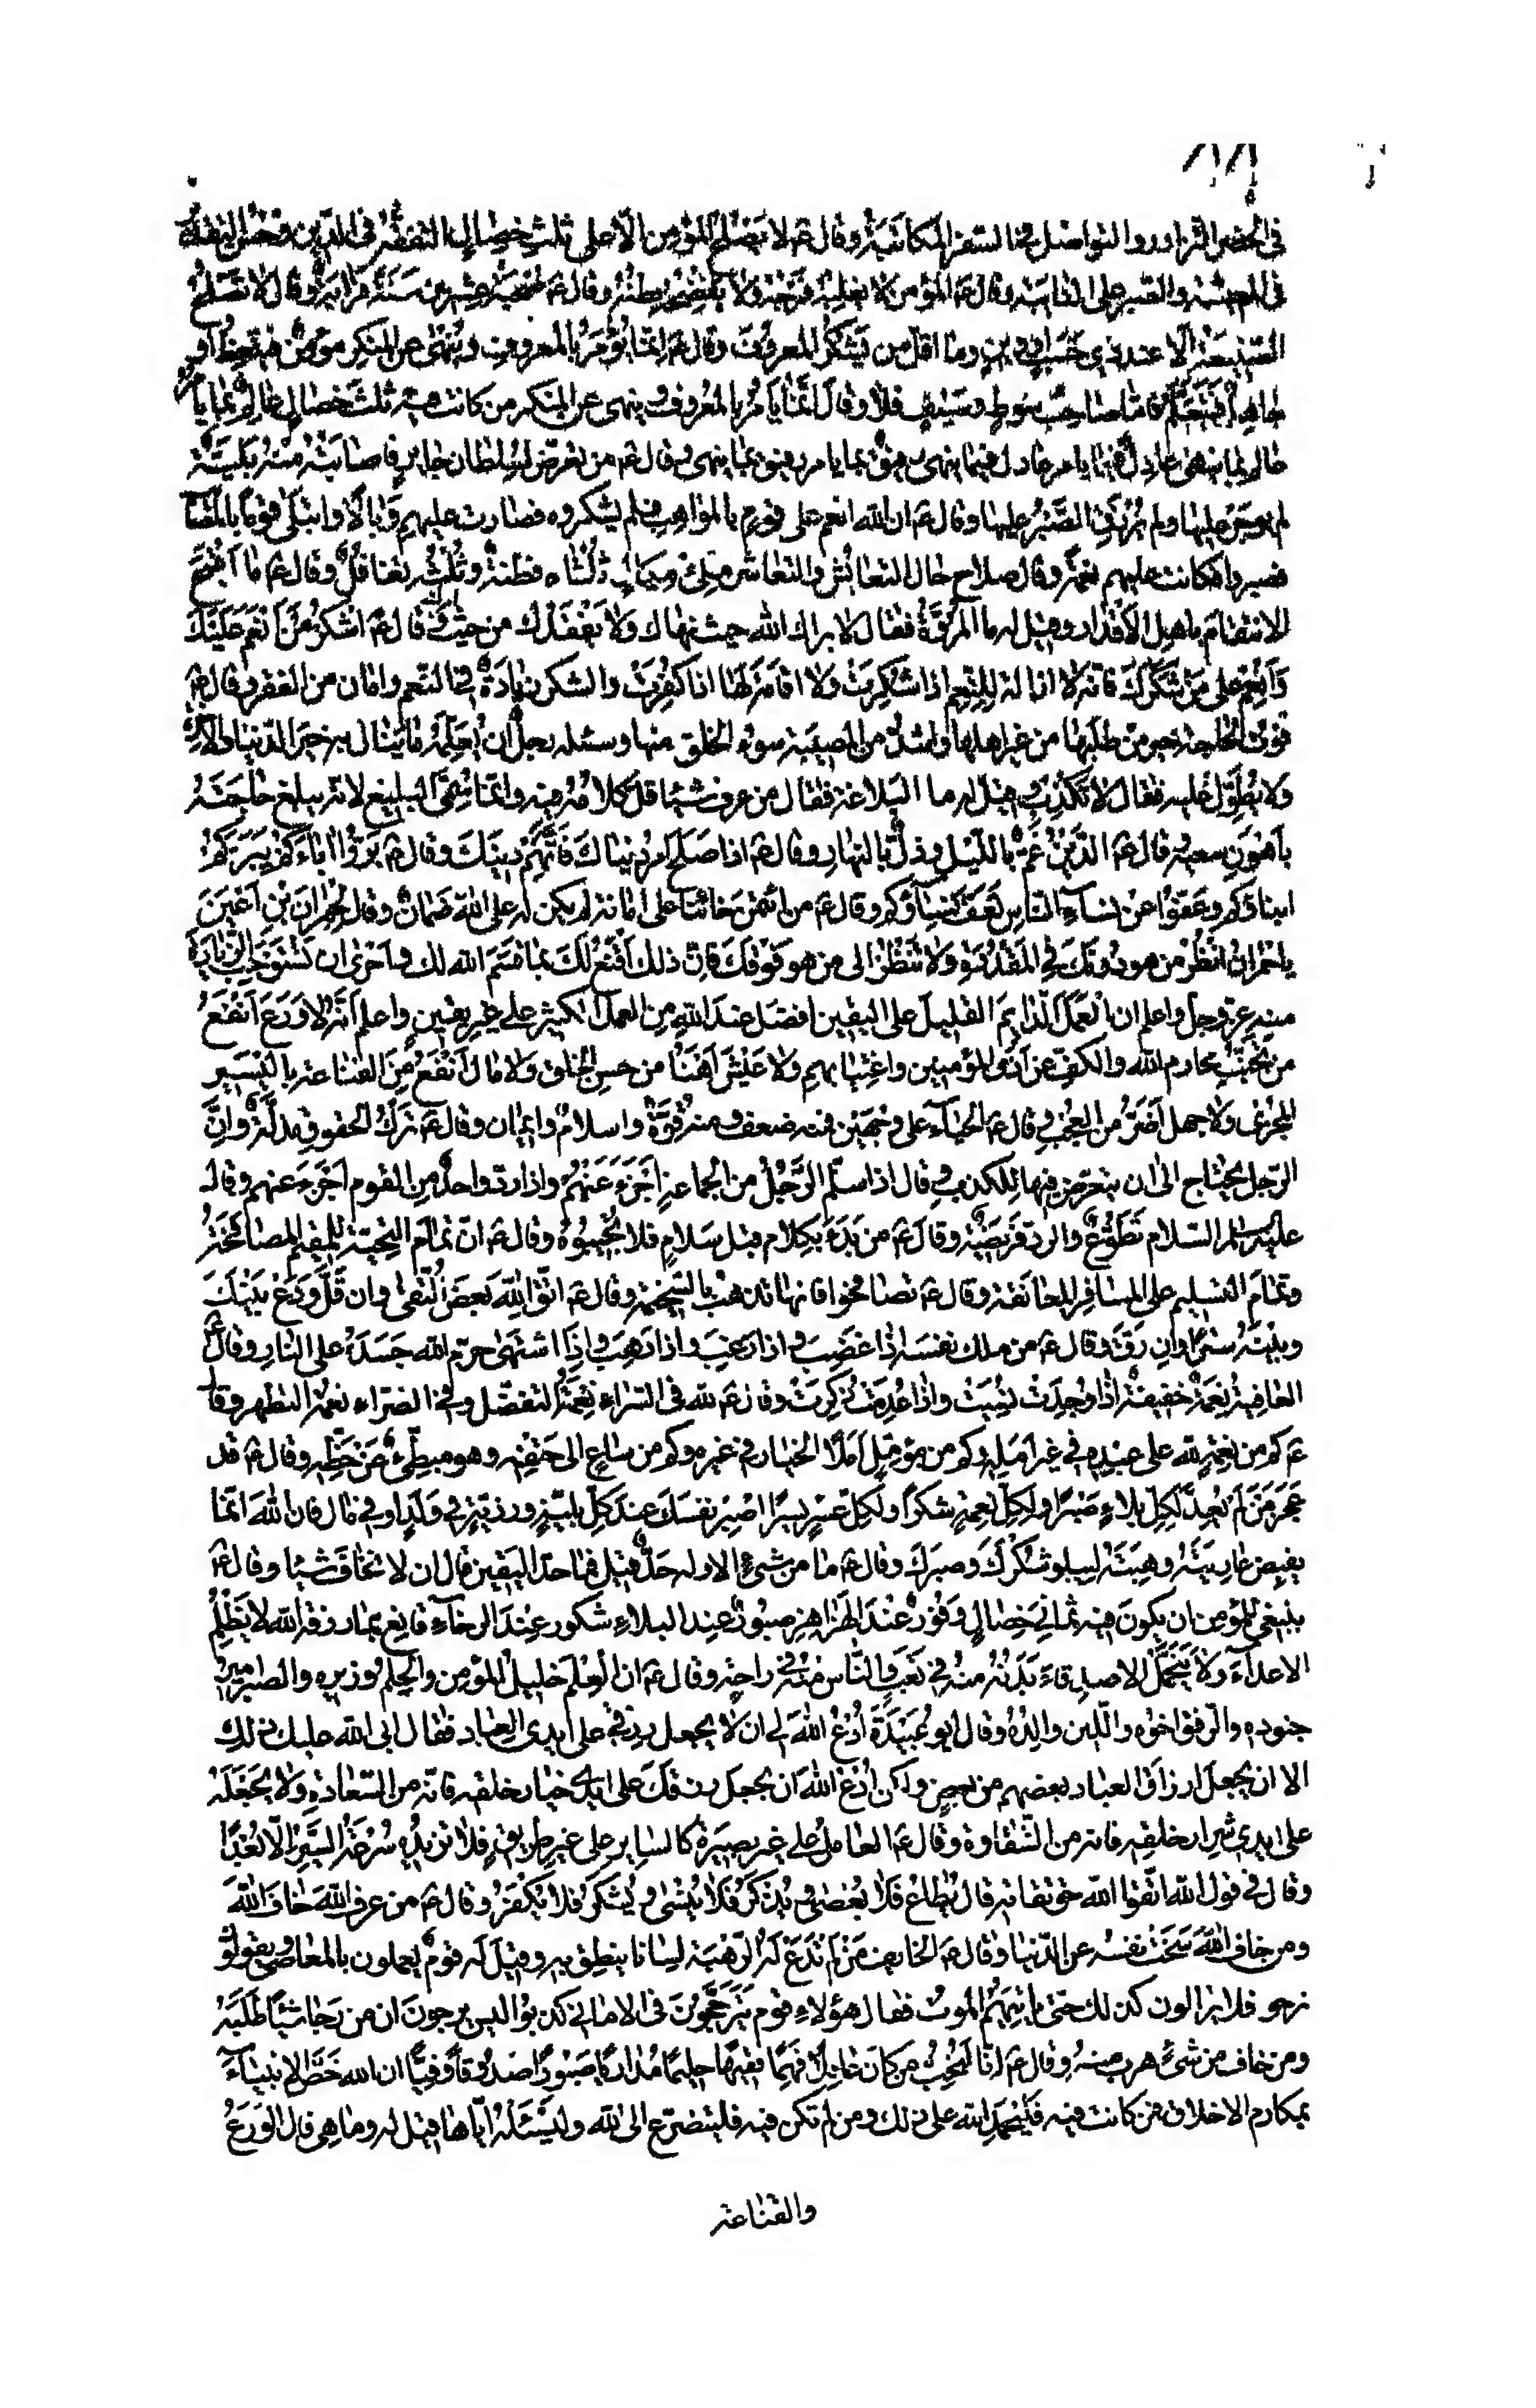 في الحضر التزاور والتواصل في السفر المكاتبة وقال ع لا يصلح المؤمن الا على ثلث خصال التفقه في الدين وحسن التقدير
في المعيشة والصبر على النائبة وقال ع المؤمن لا يغلبه فرجه ولا يفضحه بطنه وقال ع صحبة عشرين سنة قرابة وقال لا تصلح
الصنيعة الا عند ذي حسب او دين وما اقل من يشكر المعروف وقال ع انما يؤمر بالمعروف وينهى عن المنكر مؤمن فيتعظ او
جاهل فيتعلم فاما صاحب سوط وسيف فلا وقال انما يأمر بالمعروف وينهى عن المنكر من كانت فيه ثلث خصال عالم بما يأمر
عالم بما ينهى عادل فيما يامر عادل فيما ينهى رفيق بما يامر رفيق بما ينهى وقال ع من تعرض لسلطان جابر فاصابته منه بلية
لم يوجر عليها ولم يرزق الصبر عليها وقال ع ان الله انعم على قوم بالمواهب فلم يشكروه فصارت عليهم وبالا وابتلى قوما بالمصا
فصبروا فكانت عليهم نعمة وقال صلاح حال التعايش والتعاشر ملئ مكيال ثلثاه فطنة وثلثه تغافل وقال ع ما اقبح
الانتقام باهل الاقدار وقيل له ما المروة فقال لا يراك الله حيث نهاك ولا يفقدك من حيث امرك وقال ع اشكر من انعم عليك
وانعم على من شكرك فانه لا ازالة للنعم اذا شكرت ولا اقامة لها اذا كفرت والشكر زيادة في النعم وامان من الفقر وقال ع
فوت الحاجة خير من طلبها من غير اهلها واشد من المصيبة سوء الخلق منها وسئله رجل ان يعلمه ما ينال به خير الدنيا والاخرة
ولا يطول عليه فقال لا تكذب وقيل له ما البلاغة فقال من عرف شيئا قل كلامه فيه وانما سمي البليغ لانه يبلغ حاجته
باهون سعيه وقال ع الدين غم بالليل وذل بالنهار وقال ع اذا صلح امر دنياك فاتهم دينك وقال ع بروا اباءكم يبركم
ابناؤكم وعفوا عن نساء الناس تعف نساؤكم وقال ع من ائتمن خائنا على امانة لم يكن له على الله ضمان وقال لحمران بن اعين
يا حمران انظر من هو دونك في المقدرة ولا تنظر الى من هو فوقك فان ذلك اقنع لك بما قسم الله لك واحرى ان تستوجب الزيادة
منه عز وجل واعلم ان العمل الدايم القليل على اليقين افضل عند الله من العمل الكثير على غير يقين واعلم انه لا ورع انفع
من تجنب محارم الله والكف عن اذى المؤمنين واغتيابهم ولا عيش اهنأ من حسن الخلق ولا مال انفع من القناعة باليسير
المجزي ولا جهل اضر من العجب وقال ع الحياء على وجهين فمنه ضعف ومنه قوة واسلام وايمان وقال ع ترك الحقوق مذلة وان
الرجل يحتاج الى ان يتعرض فيها للكذب وقال اذا سلم الرجل من الجماعة اجزء عنهم واذا رد واحد من القوم اجزء عنهم وقال
عليه السلام السلام تطوع والرد فريضة وقال ع من بدء بكلام قبل سلام فلا تجيبوه وقال ع ان تمام التحية للمقيم المصافحة
وتمام التسليم على المسافر المعانقة وقال ع تصافحوا فانها تذهب بالسخيمة وقال ع اتق الله بعض التقى وان قل ودع بينك
وبينه سترا وان رق وقال ع من ملك نفسه اذا غضب واذا رغب واذا رهب واذا اشتهى حرم الله جسده على النار وقال ع
العافية نعمة خفيفة اذا وجدت نسيت واذا عدمت ذكرت وقال ع لله في السراء نعمة التفضل وفي الضراء نعمة التطهر وقا
ع كم من نعمة لله على عبده في غير امله وكم من مؤمل املا الخيار في غيره وكم من ساع الى حتفه وهو مبطئ عن حظه وقال ع قد
عجز من لم يعد لكل بلاء صبرا ولكل نعمة شكرا ولكل عسر يسرا اصبر نفسك عند كل بلية ورزية في ولد او في مال فان الله انما
يقبض عاريته وهبته ليبلو شكرك وصبرك وقال ع ما من شئ الا وله حد قيل فما حد اليقين قال ان لا تخاف شيئا وقال ع
ينبغي للمؤمن ان يكون فيه ثماني خصال وقور عند الهزاهز صبور عند البلاء شكور عند الرخاء قانع بما رزقه الله لا يظلم
الاعداء ولا يتحمل الاصدقاء بدنه منه في تعب والناس منه في راحة وقال ع ان العلم خليل المؤمن والحلم وزيره والصبر امير
جنوده والرفق اخوه واللين والده وقال ابو عبيدة ادع الله لي ان لا يجعل رزقي على ايدي العباد فقال ابى الله عليك ذلك
الا ان يجعل ارزاق العباد بعضهم من بعض ولكن ادع الله ان يجعل رزقك على ايدي خيار خلقه فانه من السعادة ولا يجعله
على ايدي شرار خلقه فانه من الشقاوة وقال ع العامل على غير بصيرة كالساير على غير طريق فلا تزيده سرعة السير الا بعدا
وقال في قول الله اتقوا الله حق تقاته قال يطاع فلا يعصى ويذكر فلا ينسى ويشكر فلا يكفر وقال ع من عرف الله خاف الله
ومن خاف الله سخت نفسه عن الدنيا وقال ع الخايف من لم تدع له الرهبة لسانا ينطق به وقيل له قوم يعملون بالمعاصي ويقولو
نرجو فلا يزالون كذلك حتى ياتيهم الموت فقال هؤلاء قوم يترجحون في الاماني كذبوا ليس يرجون ان من رجا شيئا طلبه
ومن خاف من شئ هرب منه وقال ع انا لنحب من كان عاقلا فهما فقيها حليما مداريا صبورا صدوقا وفيا ان الله خص الانبياء
بمكارم الاخلاق فمن كانت فيه فليحمد الله على ذلك ومن لم تكن فيه فليتضرع الى الله وليسئله اياها قيل له وما هي قال الورع
والقناعة